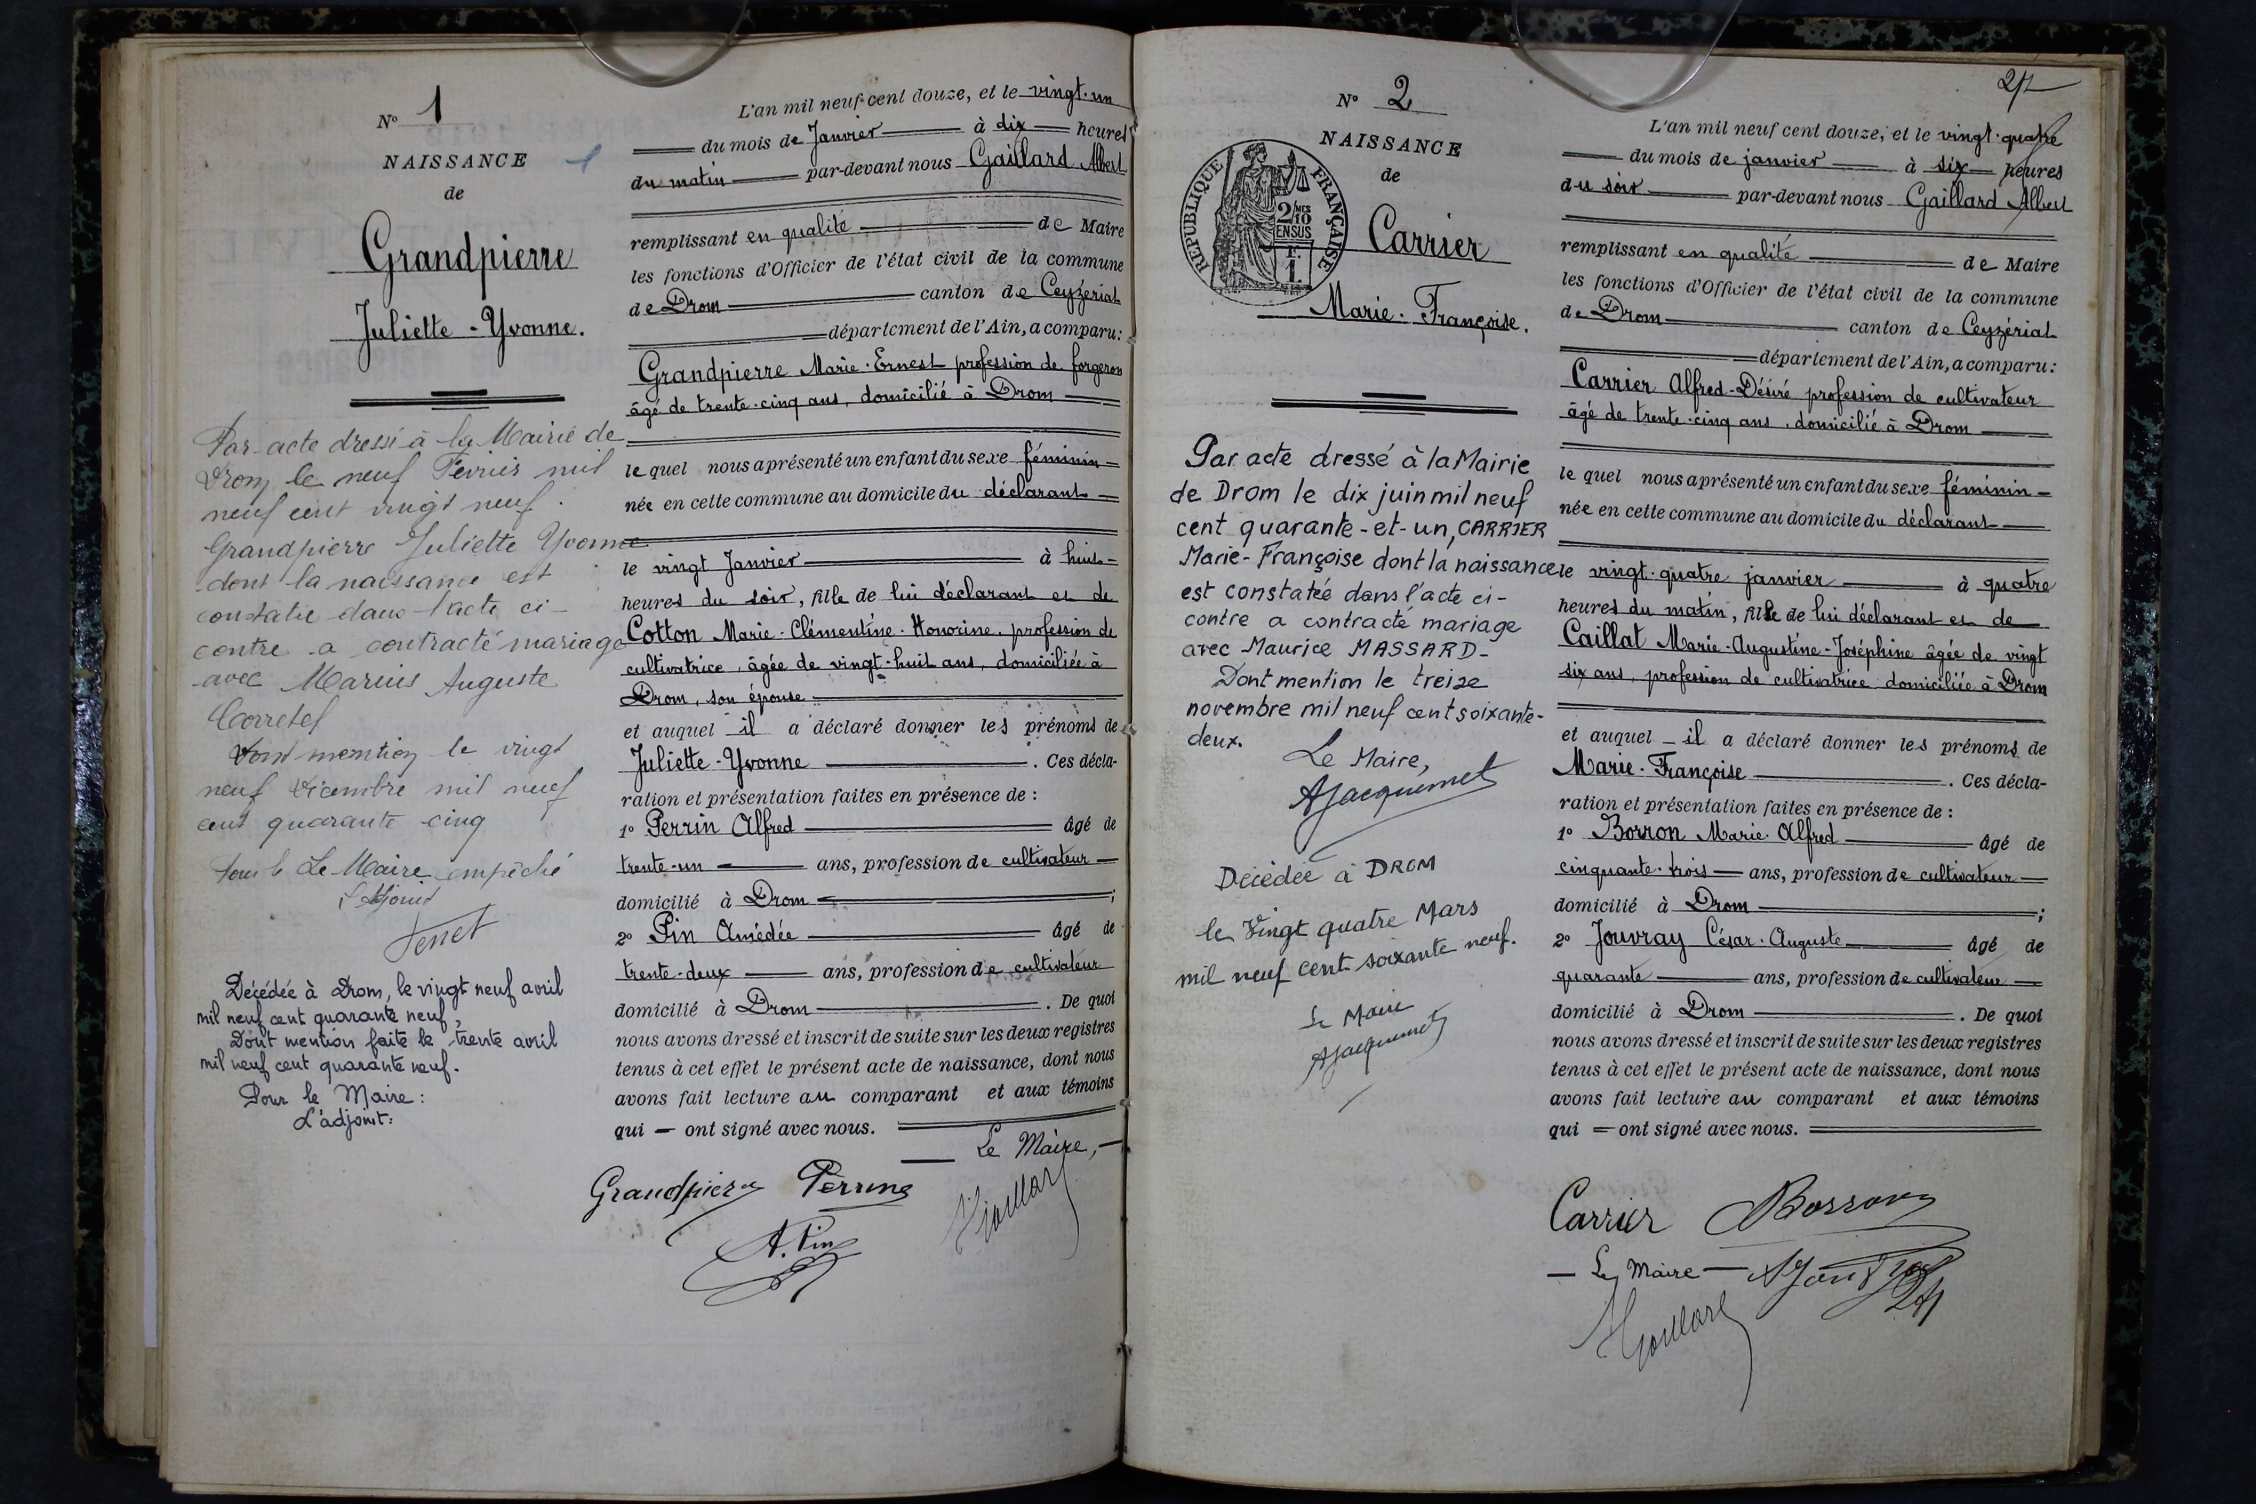 N° 1
NAISSANCE
de
Grandpierre
Juliette - Yvonne.
Par acte dressé à la Mairie de
Drom le neuf Février mil
neuf cent vingt neuf.
Grandpierre Juliette Yvonne
dont la naissance est
constatée dans l'acte ci-
contre a contracté mariage
avec Marius Auguste
Dont mention le vingt
neuf Décembre mil neuf
cent quarante cinq
Le Maire empêché
L'Adjoint
Décédée à Drom, le vingt neuf avril
mil neuf cent quarante neuf,
Dont mention faite le trente avril
mil neuf cent quarante neuf.
Pour le Maire :
L'adjoint:
L'an mil neuf cent douze, et le vingt-un
du mois de Janvier à dix heures
du matin par-devant nous Gaillard Albert
remplissant en qualité de Maire
les fonctions d'Officier de l'état civil de la commune
de Drom canton de Ceyzériat
département de l'Ain, a comparu:
Grandpierre Marie-Ernest profession de forgeron
âgé de trente-cinq ans, domicilié à Drom
le quel nous a présenté un enfant du sexe féminin
née en cette commune au domicile du déclarant
le vingt Janvier à huit
heures du soir, fille de lui déclarant et de
Cotton Marie-Clémentine-Honorine, profession de
cultivatrice, âgée de vingt-huit ans, domiciliée à
Drom, son épouse
et auquel il a déclaré donner les prénoms de
Juliette-Yvonne . Ces décla-
ration et présentation faites en présence de :
1° Perrin Alfred âgé de
trente-un ans, profession de cultivateur
domicilié à Drom ;
2° Pin Amédée âgé de
trente-deux ans, profession de cultivateur
domicilié à Drom . De quoi
nous avons dressé et inscrit de suite sur les deux registres
tenus à cet effet le présent acte de naissance, dont nous
avons fait lecture au comparant et aux témoins
qui ont signé avec nous.
Le Maire,
Grandpierre
A. Pin
27
N° 2
NAISSANCE
de
RÉPUBLIQUE FRANÇAISE
2/10 MES
EN SUS
F.
1.
Carrier
Marie-Françoise.
Par acte dressé à la Mairie
de Drom le dix juin mil neuf
cent quarante-et-un, CARRIER
Marie-Françoise dont la naissance
est constatée dans l'acte ci-
contre a contracté mariage
avec Maurice MASSARD-
Dont mention le treize
novembre mil neuf cent soixante-
deux.
Le Maire,
AJacquemet
Décédée à DROM
le Vingt quatre Mars
mil neuf cent soixante neuf.
Le Maire
AJacquemet
L'an mil neuf cent douze, et le vingt-quatre
du mois de janvier à six heures
du soir par-devant nous Gaillard Albert
remplissant en qualité de Maire
les fonctions d'Officier de l'état civil de la commune
de Drom canton de Ceyzériat
département de l'Ain, a comparu:
Carrier Alfred-Désiré profession de cultivateur
âgé de trente-cinq ans, domicilié à Drom
le quel nous a présenté un enfant du sexe féminin
née en cette commune au domicile du déclarant
le vingt-quatre janvier à quatre
heures du matin, fille de lui déclarant et de
Caillat Marie-Augustine-Joséphine âgée de vingt
six ans, profession de cultivatrice domiciliée à Drom
et auquel il a déclaré donner les prénoms de
Marie-Françoise . Ces décla-
ration et présentation faites en présence de :
1° Borron Marie-Alfred âgé de
cinquante-trois ans, profession de cultivateur
domicilié à Drom ;
2° Jouvray César-Auguste âgé de
quarante ans, profession de cultivateur
domicilié à Drom . De quoi
nous avons dressé et inscrit de suite sur les deux registres
tenus à cet effet le présent acte de naissance, dont nous
avons fait lecture au comparant et aux témoins
qui ont signé avec nous.
Carrier
Le Maire